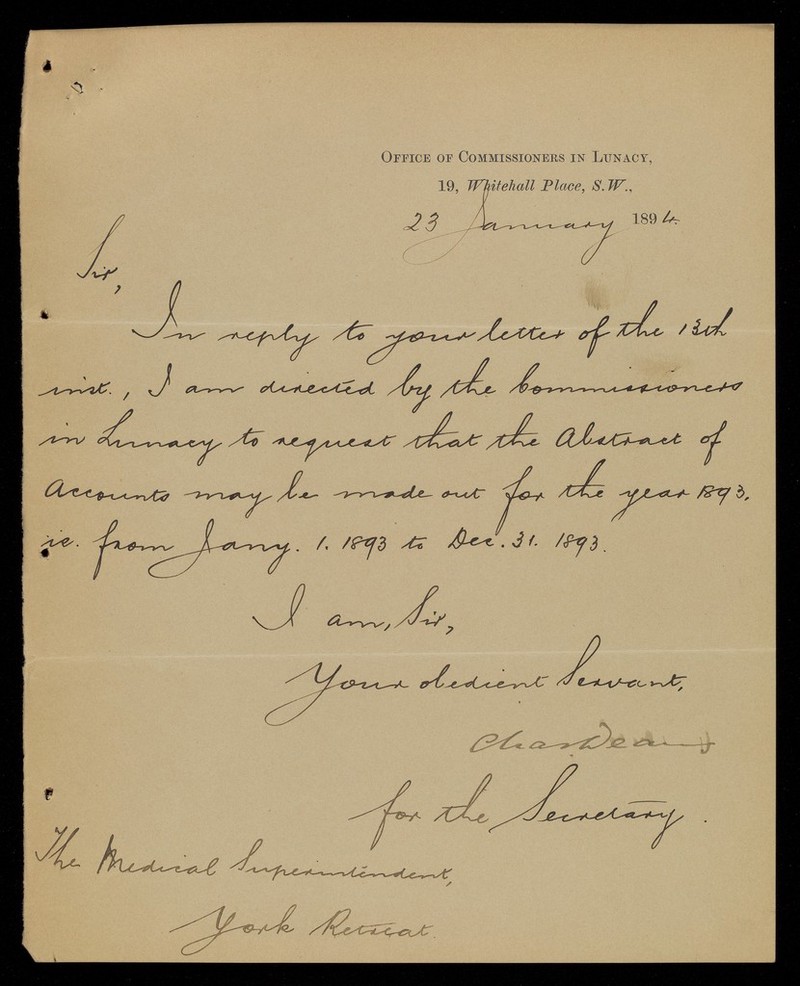 OFFICE OF COMMISSIONERS IN LUNACY,
19, Whitehall Place, S.W.,
23 January 1894.
Sir,
In reply to your letter of the 13th
inst., I am directed by the Commissioners
in Lunacy to request that the Abstract of
Accounts may be made out for the year 1893.
ie. from Jany. 1. 1893 to Dec. 31. 1893.
I am, Sir,
Your obedient Servant,
Chas
for the Secretary.
The Medical Superintendent,
York Retreat.